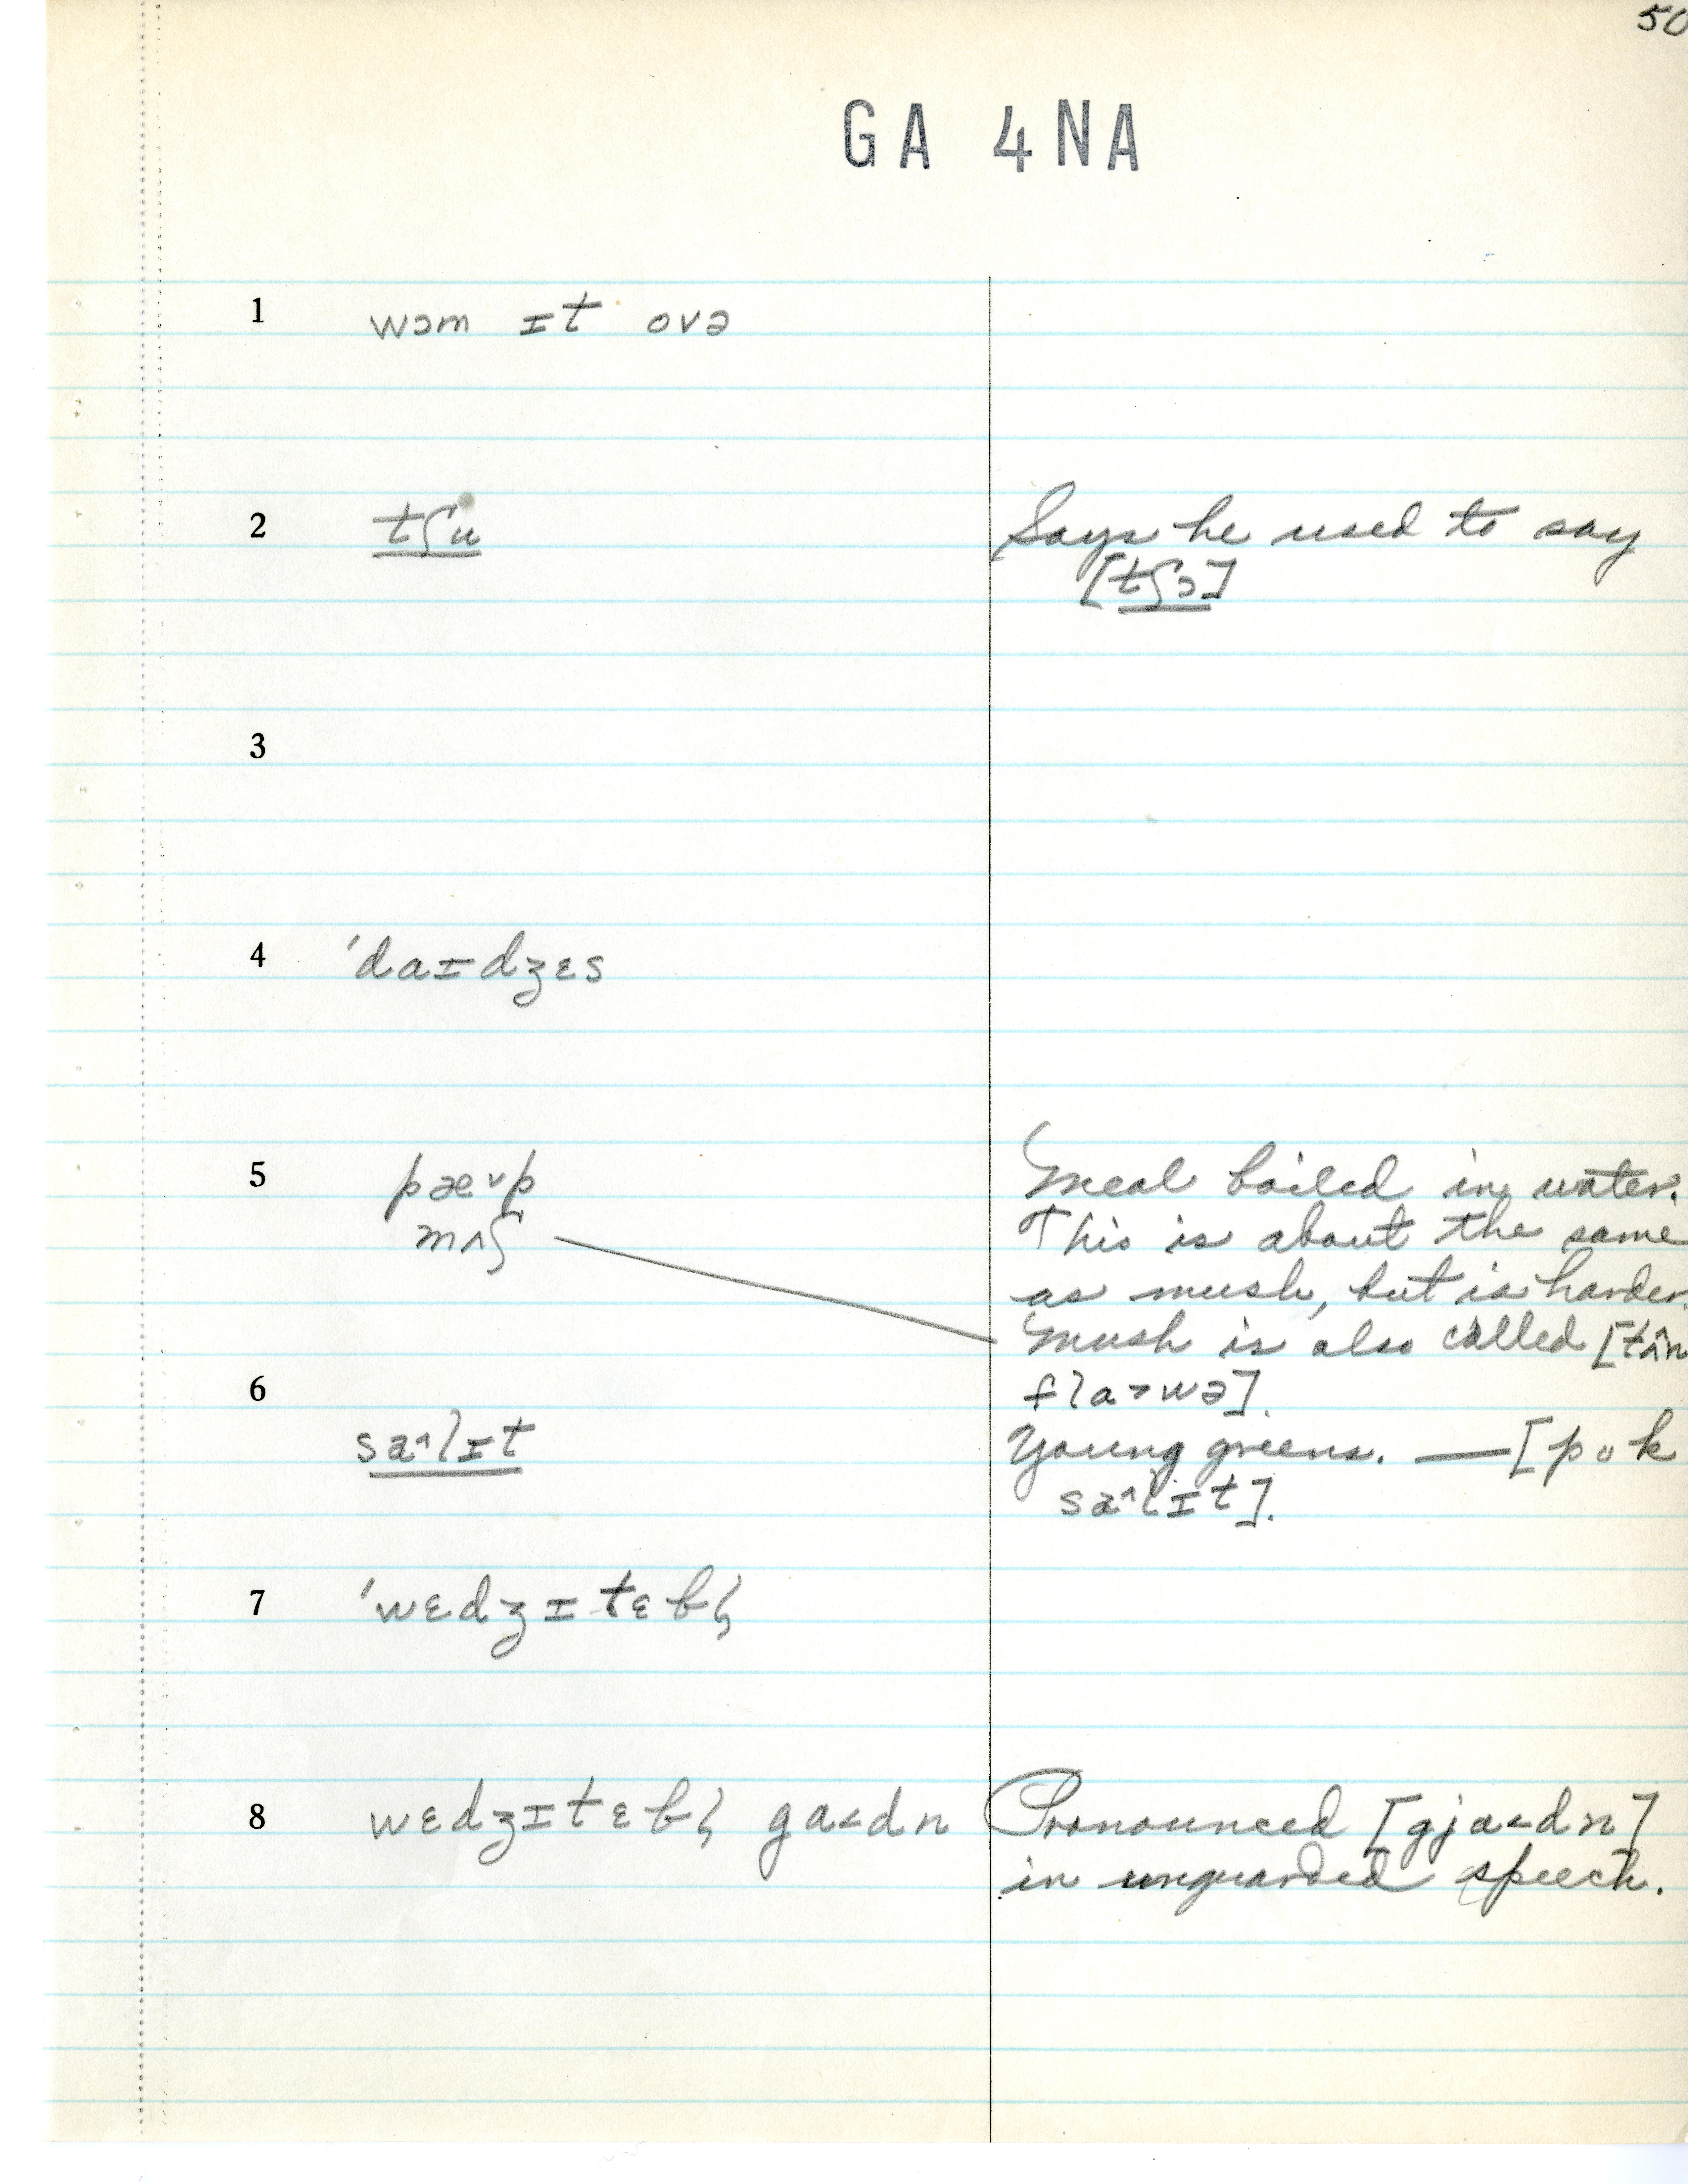 50
GA 4NA
1 wɔm ɪt ovə
2 tʃu Says he used to say
[tʃɔ]
3
4 ˈdaɪdʒɛs
5 pæ˅p Meal boiled in water.
mʌʃ This is about the same
as mush, but is harder.
Mush is also called [tɜn
6 fla>wə].
sæ^lɪt Young greens. — [pok
sæ^lɪt].
7 ˈwɛdʒɪtɛbl̩
8 wɛdʒɪtɛbl̩ ga<dn Pronounced [gja<dn]
in unguarded speech.